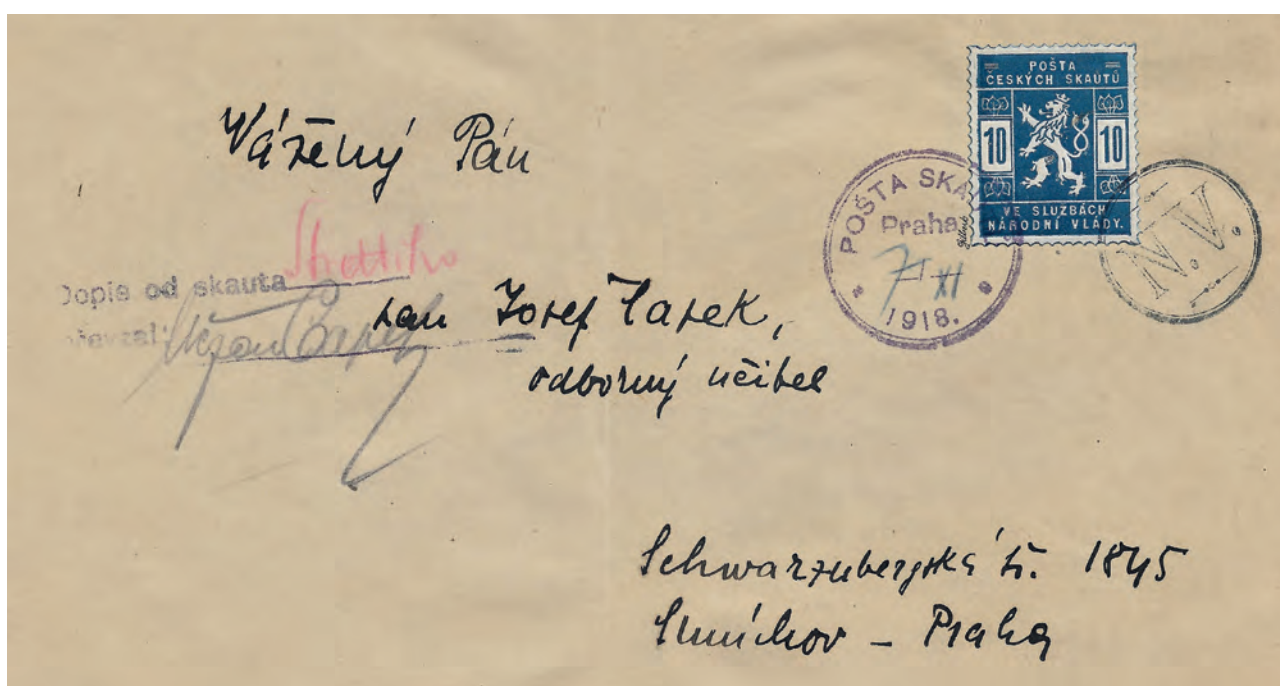 POŠTA
ČESKÝCH SKAUTŮ
10 10
VE SLUZBÁCH
NÁRODNÍ VLÁDY.
POŠTA SKA
Praha
7 XI
1918.
N.V.
Vážený Pán
Dopis od skauta
převzal:
pan Josef Čapek,
odborný učitel
Schwarzenbergská tř. 1845
Smíchov – Praha